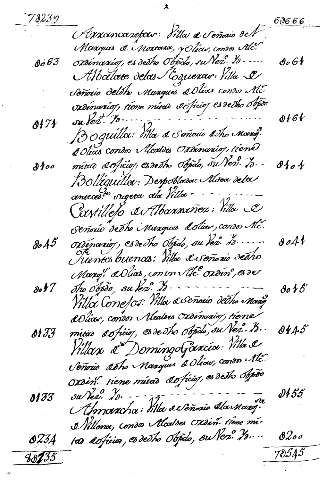 78239 68666
Arrancacepas: Villa de Señorio del
Marques de Moxerra, y Olias, con dos Alc.s
8063 ordinarios, es de dho Obpdo, su Vez.o Yo 8061
Albalate de las Nogueras: Villa de
Señorio del dho Marques de Olias con dos Al.
ordinarios, tiene mitad de oficios, es de dho Obpdo
8171 su Vez.o Yo 8161
Boquilla: Villa de Señorio de dho Marq.
de Olias con dos Alcaldes Ordinarios, tiene
8100 mitad de oficios, es de dho Obpdo, su Vez.o Yo 8101
Bolliguilla: Despoblado: Aldea de la
antecedte sugeta a la Villa
Castillejo de Albarrañez: Villa de
Señorio de dho Marques de Olias, con dos Al.
8045 ordinarios, es de dho Obpdo, su Vez.o Yo 8041
Fuentes buenas: Villa de Señorio de dho
Marq.s de Olias, con un Al.e ordin.o, es de
8017 dho Obpdo, su Vez.o Yo 8015
Villa Conejos: Villa de Señorio del dho Marq.
de Olias, con dos Alcaldes ordinarios, tiene
8133 mitad de oficios, es de dho Obpdo, su Vez.o Yo 8145
Villar de Domingo Garcia: Villa de
Señorio de dho Marques de Olias, con dos Al.
ordin.s tiene mitad de oficios, es de dho Obpdo
8133 su Vez.o Yo 8155
Almarcha: Villa de Señorio de la Marq.sa
de Villena, con dos Alcaldes ordin.s tiene mi-
8234 tad de oficios, es de dho Obpdo, su Vez.o Yo 8200
78545